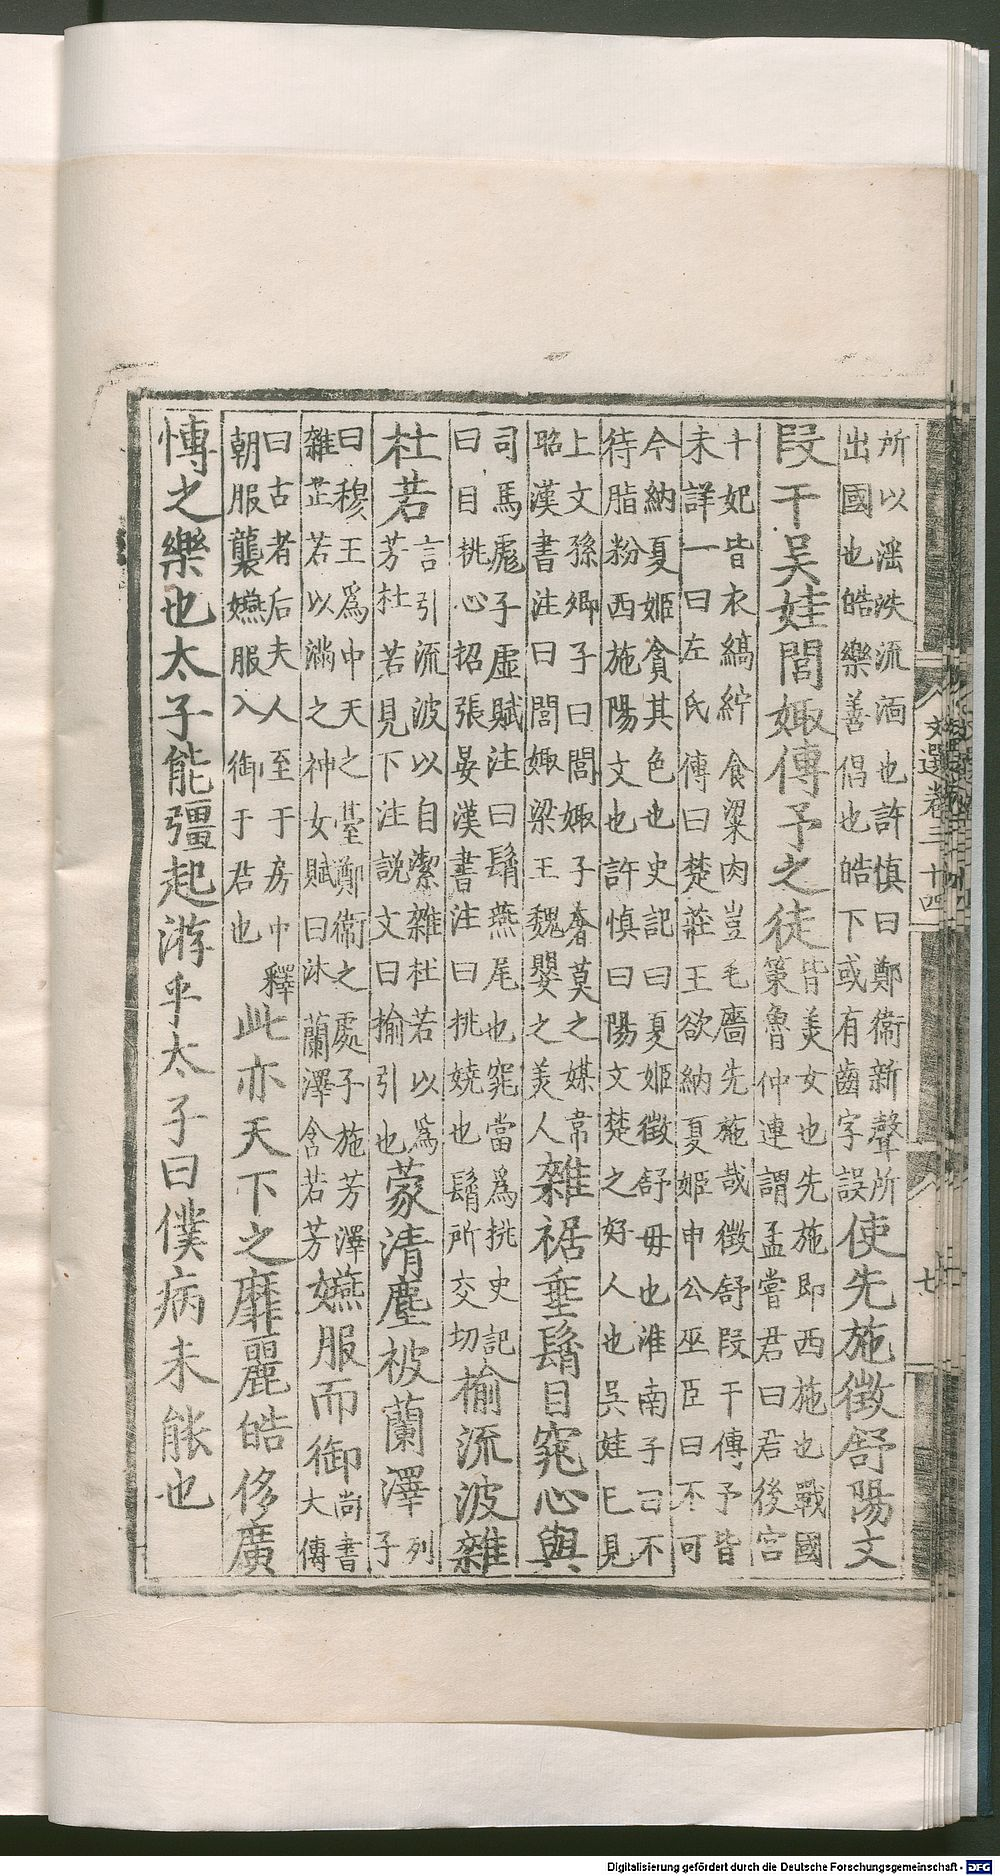 文選卷三十四
七
所以滛泆流湎也許慎曰鄭衛新聲所出國也皓樂善倡也皓下或有齒字誤使先施徵舒陽文
段干吳娃閭娵傳予之徒皆美女也先施即西施也戰國策魯仲連謂孟嘗君曰君後宮
十妃皆衣縞紵食粱肉豈毛嬙先施哉徵舒段干傳予皆未詳一曰左氏傳曰楚莊王欲納夏姬申公巫臣曰不可
今納夏姬貪其色也史記曰夏姬徵舒毋也淮南子曰不待脂粉西施陽文也許慎曰陽文楚之好人也吳娃已見
上文孫卿子曰閭娵子奢莫之媒韋昭漢書注曰閭娵梁王魏嬰之美人雜裾垂髾目窕心與
司馬彪子虛賦注曰髾燕尾也窕當爲挑史記曰目挑心招張晏漢書注曰挑嬈也髾所交切揄流波雜
杜若言引流波以自潔雜杜若以爲芳杜若見下注説文曰揄引也蒙清塵被蘭澤列子
曰穆王爲中天之臺鄭衛之處子施芳澤雜芷若以滿之神女賦曰沐蘭澤含若芳嬿服而御尚書大傳
曰古者后夫人至于房中釋朝服襲嬿服入御于君也此亦天下之靡麗皓侈廣
愽之樂也太子能彊起游乎太子曰僕病未能也
Digitalisierung gefördert durch die Deutsche Forschungsgemeinschaft - DFG